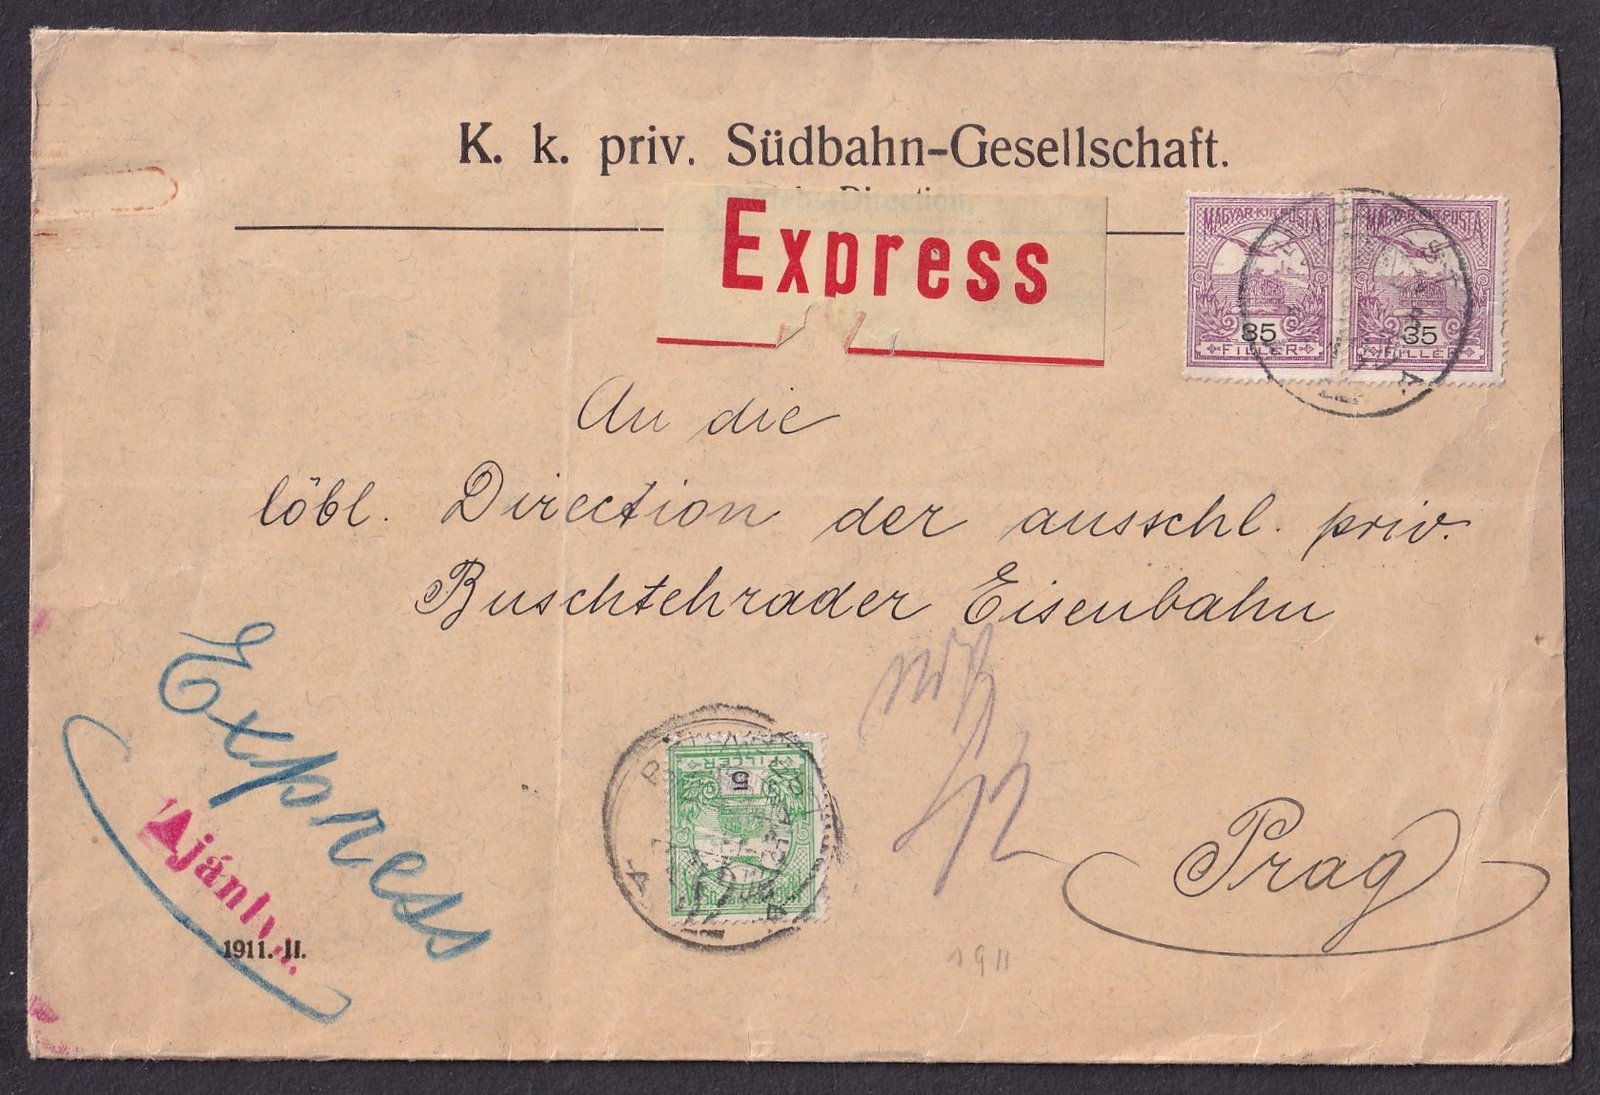 K. k. priv. Südbahn-Gesellschaft.
Direction,
Express
MAGYAR KIR. POSTA
35
FILLÉR
MAGYAR KIR. POSTA
35
FILLÉR
An die
löbl. Direction der ausschl. priv.
Buschtehrader Eisenbahn
Prag
Express
Ajánl
1911. II.
FILLÉR
5
1911